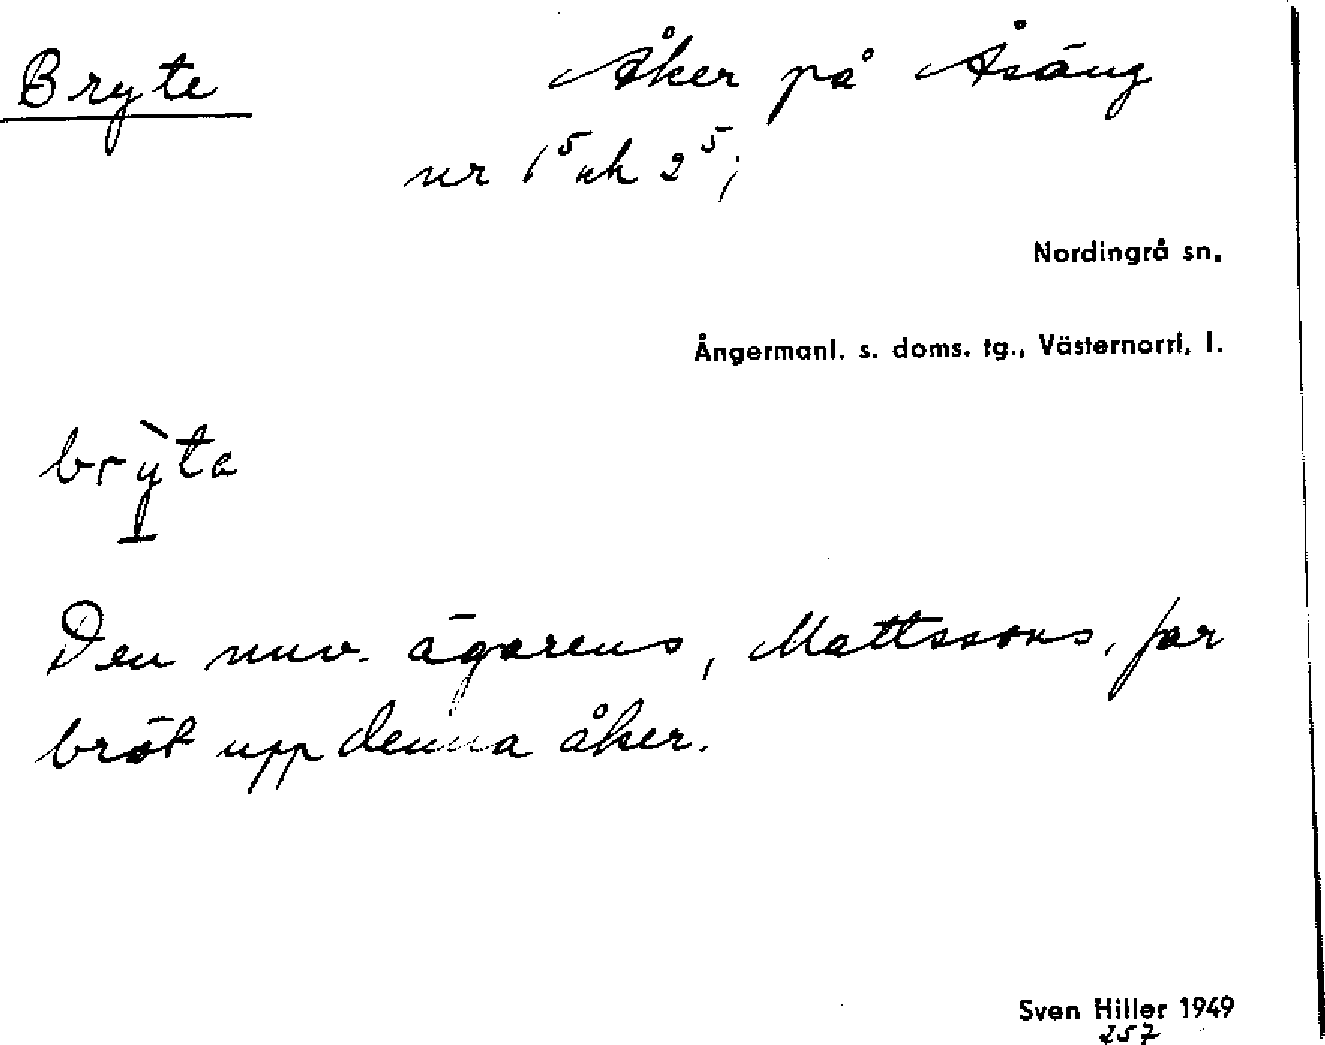 Bryte
Åker på Åsäng
nr 1⁵ och 2⁵;
Nordingrå sn.
Ångermanl. s. doms. tg., Västernorrl. l.
brỳta
Den nuv. ägarens, Mattssons, far
bröt upp denna åker.
Sven Hiller 1949
257